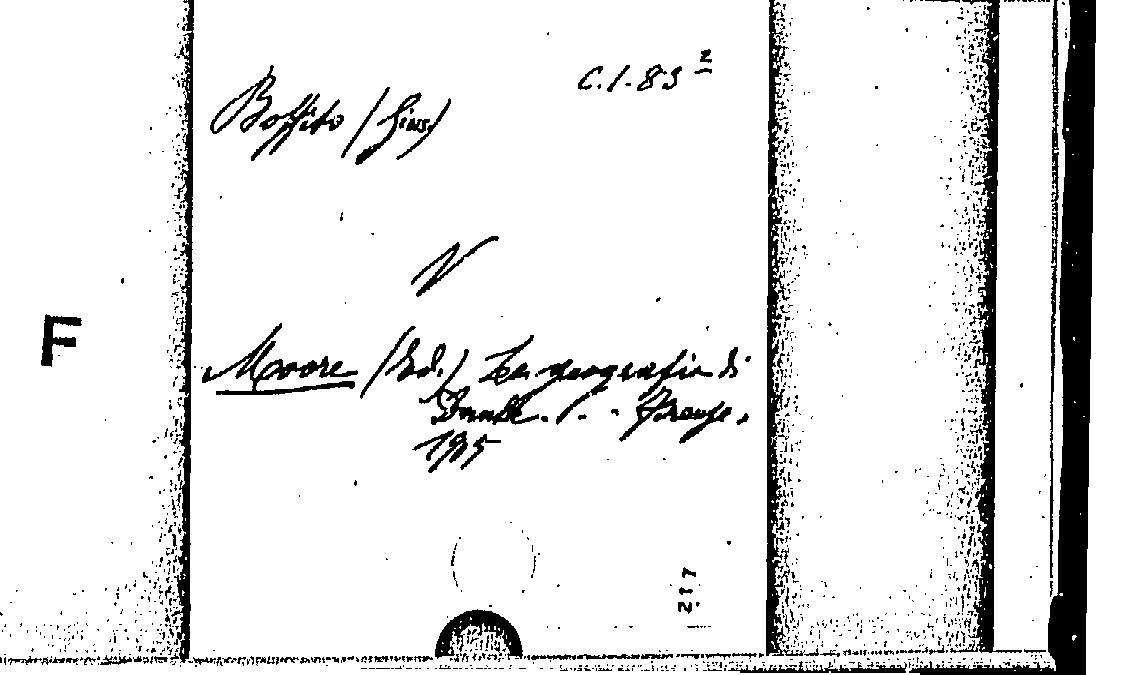 C.1.83 2
Boffito (Gius.)
V
Moore (Ed.) La geografia di
Dante. . . Firenze,
1905
F
217